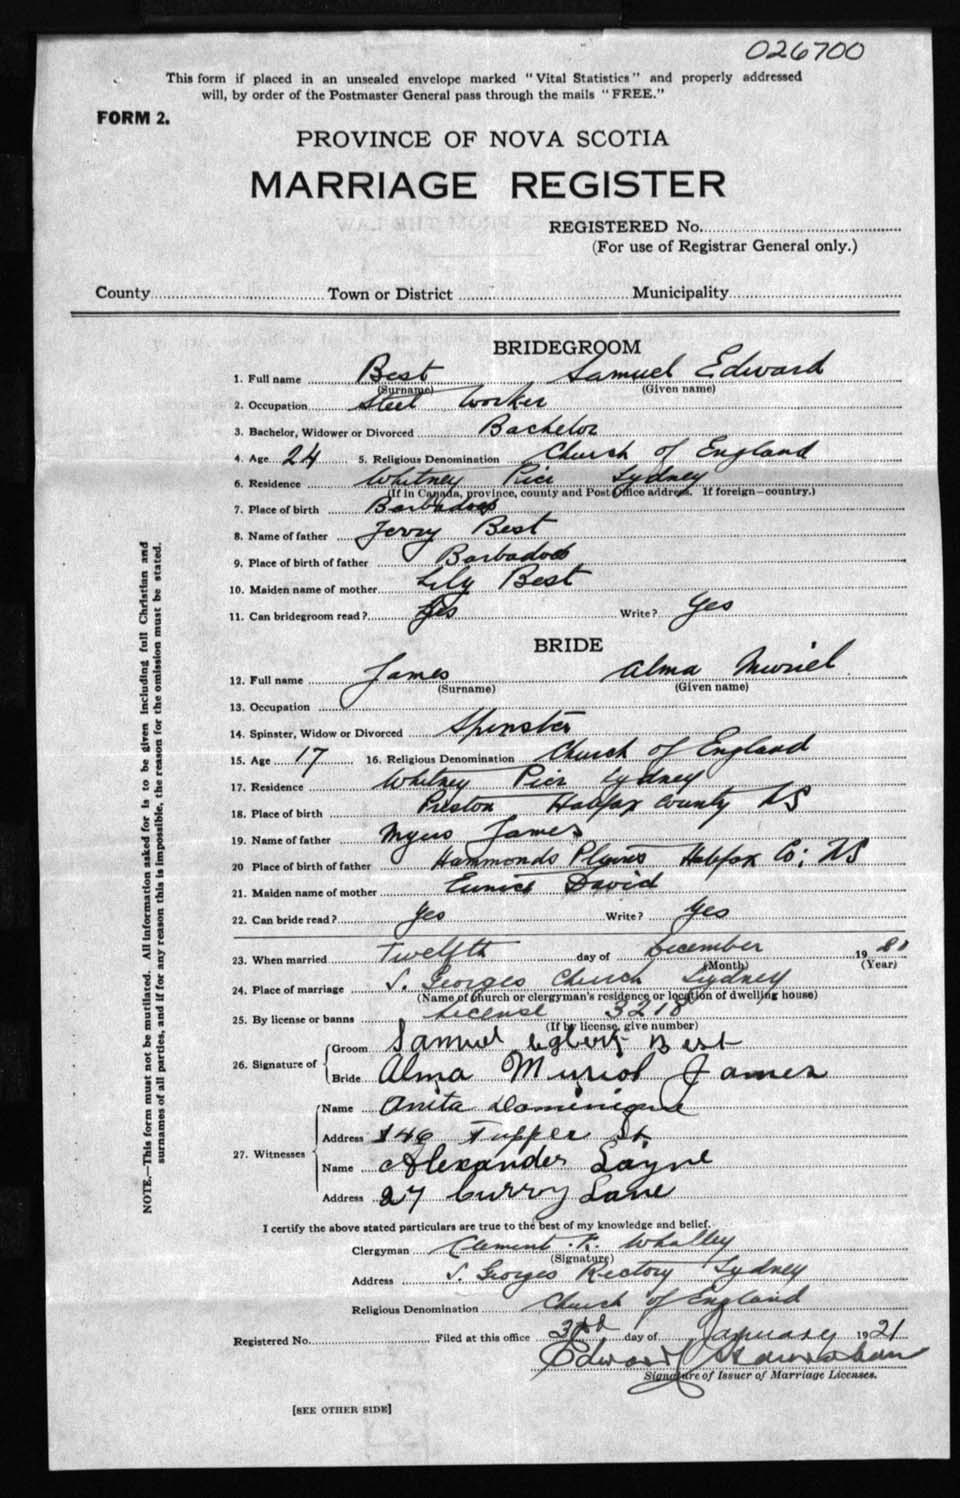 026700
This form if placed in an unsealed envelope marked "Vital Statistics" and properly addressed
will, by order of the Postmaster General pass through the mails "FREE."
FORM 2.
PROVINCE OF NOVA SCOTIA
MARRIAGE REGISTER
REGISTERED No.
(For use of Registrar General only.)
County Town or District Municipality
BRIDEGROOM
1. Full name Best Samuel Edward
(Surname) (Given name)
2. Occupation Steel Worker
3. Bachelor, Widower or Divorced Bachelor
4. Age 24 5. Religious Denomination Church of England
6. Residence Whitney Pier Sydney
(If in Canada, province, county and Post Office address. If foreign—country.)
7. Place of birth Barbadoes
8. Name of father Jerry Best
9. Place of birth of father Barbadoes
10. Maiden name of mother Lily Best
11. Can bridegroom read? Yes Write? Yes
BRIDE
12. Full name James Alma Muriel
(Surname) (Given name)
13. Occupation
14. Spinster, Widow or Divorced Spinster
15. Age 17 16. Religious Denomination Church of England
17. Residence Whitney Pier Sydney
18. Place of birth Preston Halifax County NS
19. Name of father James
20 Place of birth of father Hammonds Plains Halifax Co; NS
21. Maiden name of mother Eunice David
22. Can bride read? Yes Write? Yes
23. When married Twelfth day of December 19
(Month) (Year)
24. Place of marriage S. Georges Church Sydney
(Name of church or clergyman's residence or location of dwelling house)
25. By license or banns License 3218
(If by license, give number)
26. Signature of
Groom Samuel Best
Bride Alma Muriel James
27. Witnesses
Name Anita Dominique
Address 146 Tupper St
Name Alexander Layne
Address 27 Curry Lane
I certify the above stated particulars are true to the best of my knowledge and belief.
Clergyman Clement Whalley
(Signature)
Address S. Georges Rectory Sydney
Religious Denomination Church of England
Registered No. Filed at this office 3rd day of January 1921
Edward
Signature of Issuer of Marriage Licenses.
[SEE OTHER SIDE]
NOTE.—This form must not be mutilated. All information asked for is to be given including full Christian and
surnames of all parties, and if for any reason this is impossible, the reason for the omission must be stated.